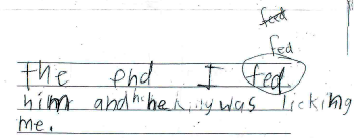 feed
fed
the end I fed
him and he was licking
me.